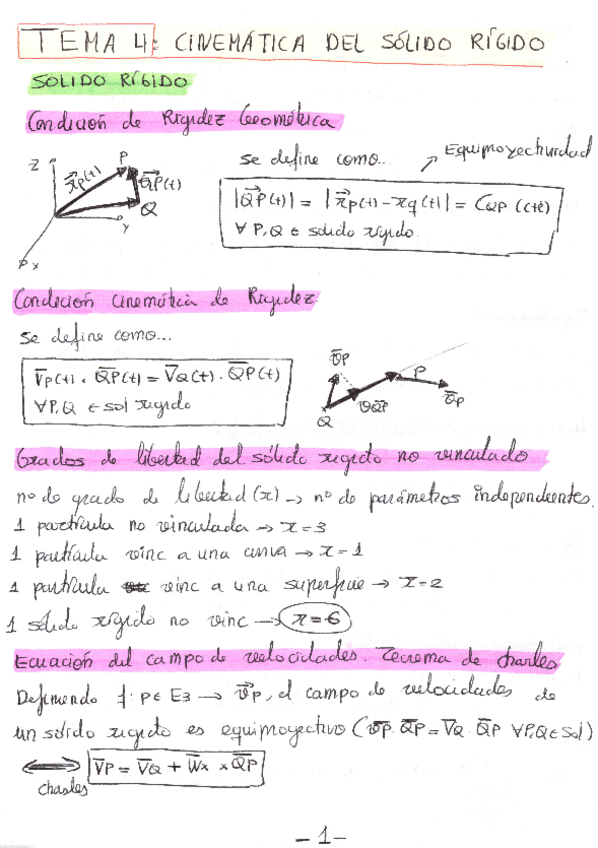 TEMA 4: CINEMÁTICA DEL SÓLIDO RÍGIDO
SOLIDO RÍGIDO
Condición de Rigidez Geométrica
Z
P
x⃗p(t)
Q⃗P(t)
Q
y
x
Se define como...
Equiproyectividad
|Q⃗P(t)| = |x⃗p(t) - xq(t)| = CQP (cte)
∀ P,Q ∈ solido rígido.
Condición cinemática de Rigidez
Se define como...
V̄P(t) · Q̄P(t) = V̄Q(t) · Q̄P(t)
∀P,Q ∈ sol rígido
v̄P
P
v̄QP
v̄P
Q
Grados de libertad del sólido rígido no vinculado
nº de grado de libertad (x) → nº de parámetros independientes.
1 partícula no vinculada → x=3
1 partícula vinc a una curva → x=1
1 partícula vinc a una superficie → x=2
1 sólido rígido no vinc → x=6
Ecuación del campo de velocidades. Teorema de Charles
Definiendo f: P ∈ E3 → v⃗P, el campo de velocidades de
un sólido rígido es equiproyectivo (v̄P · Q̄P = V̄Q · Q̄P ∀P,Q ∈ Sol)
⟷ V̄P = V̄Q + W̄x × Q̄P
Chasles
-1-